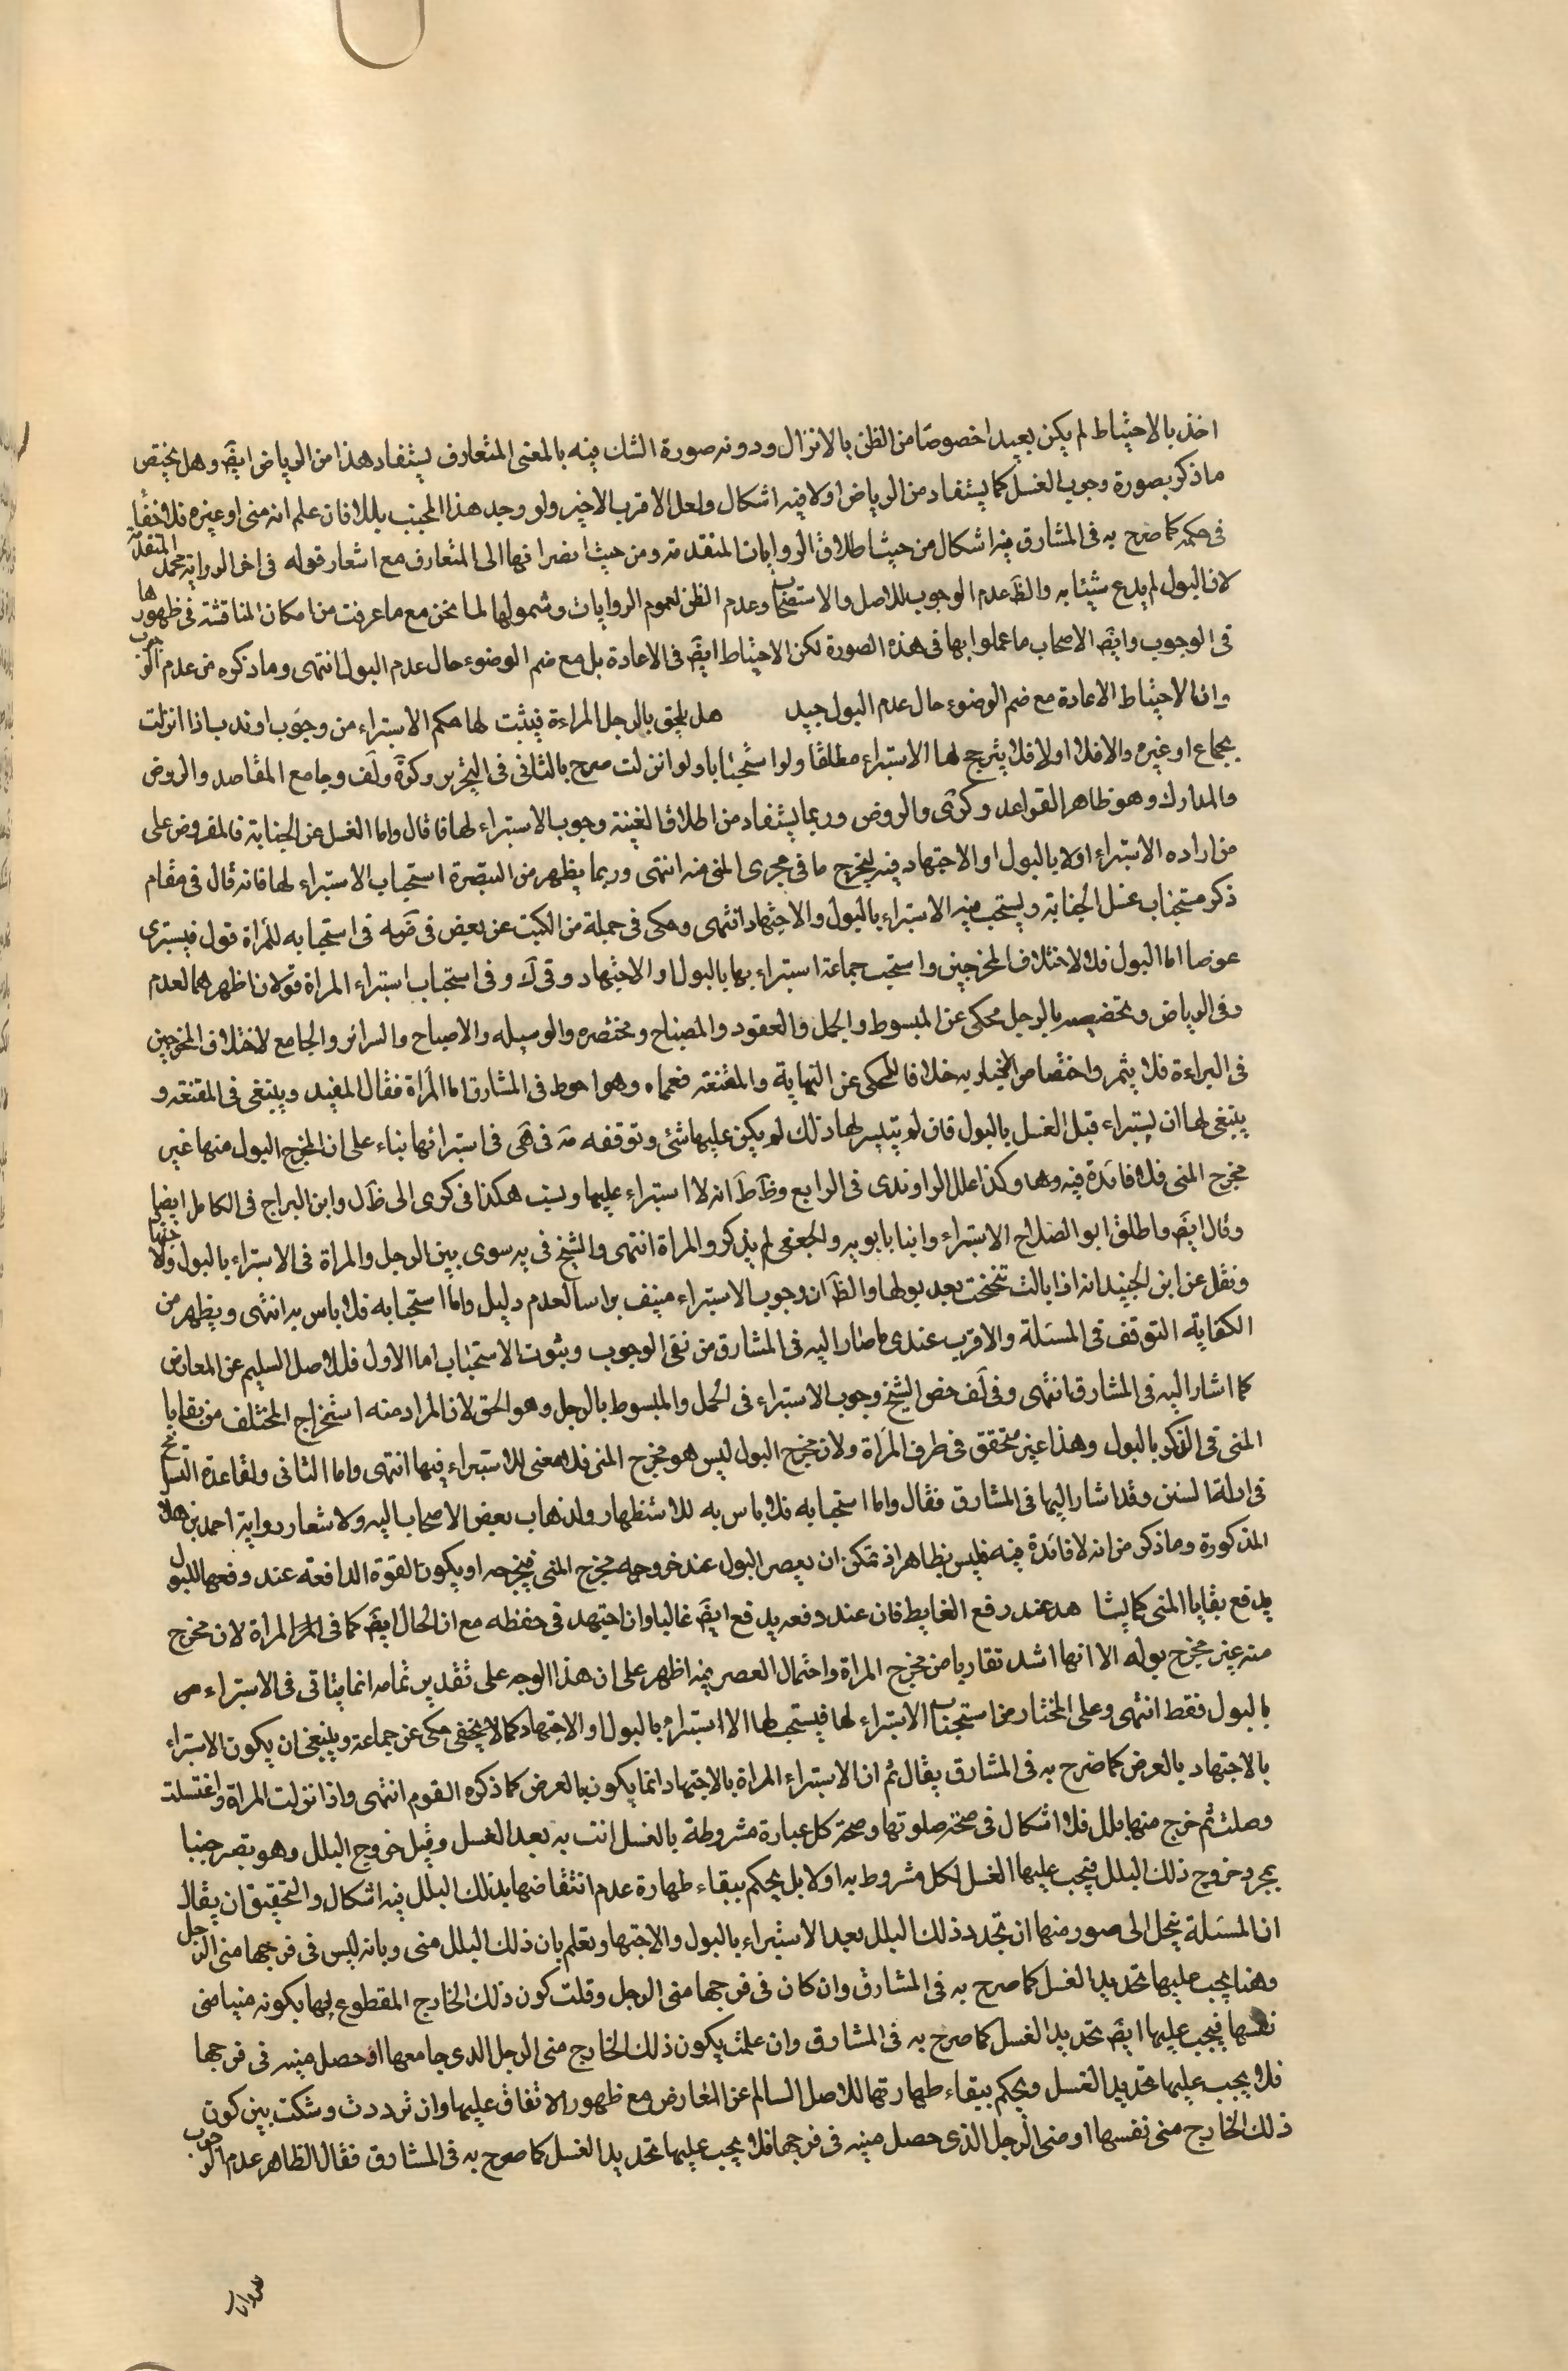 اخذ بالاحتياط لم يكن بعيدا خصوصا من الظن بالانزال ودونه صورة الشك فيه بالمعنى المتعارف يستفاد هذا من الرياض ايضَ وهل يختص
ما ذكر بصورة وجوب الغسل كما يستفاد من الرياض اولا فيه اشكال ولعل الاقرب الاخير ولو وجد هذا المجنب بللا فان علم انه منى او غيره فلا خفاء
فى حكمه كما صرح به فى المشارق فيه اشكال من حيث اطلاق الروايات المتقدمة ومن حيث انصرافها الى المتعارف مع اشعار قوله فى اخر الرواية محمد المتقدمة
لان البول لم يدع شيئا به والظَ عدم الوجوب للاصل والاستصحاب وعدم الظن لعموم الروايات وشمولها لما نحن مع ما عرفت من امكان المناقشة فى ظهورها
فى الوجوب وايضَ الاصحاب ما عملوا بها فى هذه الصورة لكن الاحتياط ايضَ فى الاعادة بل مع ضم الوضوء حال عدم البول انتهى وما ذكره من عدم الوجوب
وان الاحتياط الاعادة مع ضم الوضوء حال عدم البول جيد هل يلحق بالرجل المراءة فيثبت لها حكم الاستبراء من وجوب او ندب اذا انزلت
بجماع او غيره والا فلا اولا فلا يترجح لها الاستبراء مطلقا ولو استحبابا ولو انزلت صرح بالثانى فى التحرير وكرة ولف وجامع المقاصد والروض
والمدارك وهو ظاهر القواعد وكرى والروض وربما يستفاد من اطلاق الغنية وجوب الاستبراء لها فا قال واما الغسل عن الجنابة فالمفروض على
من اراده الاستبراء اولا بالبول او الاجتهاد فيه ليخرج ما فى مجرى المنى منه انتهى وربما يظهر من التبصرة استحباب الاستبراء لها فانه قال فى مقام
ذكر مستحبات غسل الجنابة ويستحب فيه الاستبراء بالبول والاجتهاد انتهى وحكى فى جملة من الكتب عن بعض فى ضَه فى استحبابه للمراة قول فيستبرى
عرضا اما البول فلا لاختلاف المخرجين واستحب جماعة استبراء بها بالبول او الاجتهاد وفى كَ وفى استحباب استبراء المراة قولان اظهرهما العدم
وفى الرياض وتخصيصه بالرجل محكى عن المبسوط والجمل والعقود والمصباح ومختصره والوسيله والاصباح والسرائر والجامع لاختلاف المخرجين
فى المراءة فلا يثمر واختصاص الاخبار به خلافا للمحكى عن النهاية والمقنعة فعماه وهو احوط فى المشارق اما المراة فقال المفيد وينبغى فى المقنعة و
ينبغى لها ان يستبراء قبل الغسل بالبول فان لم يتيسر لها ذلك لم يكن عليها شئى وتوقفه مَه فى هى فى استبرائها بناء على ان المخرج البول منها غير
مخرج المنى فلا فائدة فيه وها وكذا علل الراوندى فى الرابع وظ ط انه لا استبراء عليها ونسب هكذا فى كرى الى ظ ل وابن البراج فى الكامل ايضا
وقال ايضَ واطلق ابو الصلاح الاستبراء وابنا بابويه والجعفى لم يذكروا المراة انتهى والشيخ فى يه سوى بين الرجل والمراة فى الاستبراء بالبول والاجتهاد
ونقل عن ابن الجنيد انه اذا بالت تنحنحت بعد بولها والظَ ان وجوب الاستبراء منيف براسا لعدم دليل واما استحبابه فلا باس به انتهى ويظهر من
الكفاية التوقف فى المسئلة والاقرب عندى ما صار اليه فى المشارق من نفى الوجوب وثبوت الاستحباب اما الاول فللاصل السليم عن المعارض
كما اشار اليه فى المشارق انتهى وفى لَف خص الشيخ وجوب الاستبراء فى الجمل والمبسوط بالرجل وهو الحق لان المراد منه استخراج المختلف من بقايا
المنى فى الذكر بالبول وهذا غير متحقق فى طرف المراة ولان مخرج البول ليس هو مخرج المنى فلا معنى للاستبراء فيها انتهى واما الثانى ولقاعدة التسامح
فى ادلة السنن وقد اشار اليها فى المشارق فقال واما استحبابه فلا باس به للاستظهار ولذهاب بعض الاصحاب اليه ولاشعار رواية احمد بن هلال
المذكورة وما ذكر من انه لا فائدة فيه فليس بظاهر اذ تمكن ان يعصر البول عند خروجه مخرج المنى فيخرجه او يكون القوة الدافعة عند دفعها للبول
يدفع بقايا المنى كما يشا هد عند رفع الغايط فان عند دفعه يدفع ايضَ غالبا وان اجتهد فى حفظه مع ان الحال ايضَ كما فى المراة لان مخرج
منه غير مخرج بوله الا انها اشد تقاربا من مخرج المراة واحتمال العصر فيه اظهر على ان هذا الوجه على تقدير تمامه انما يتاتى فى الاستبراء من
بالبول فقط انتهى وعلى المختار من استحباب الاستبراء لها فيستحب لها الا استبراء بالبول او الاجتهاد كما لا يخفى حكى عن جماعة وينبغى ان يكون الاستبراء
بالاجتهاد بالعرض كما صرح به فى المشارق يقال ثم ان الاستبراء المراة بالاجتهاد انما يكون بالعرض كما ذكره القوم انتهى واذا نزلت المراة واغتسلت
وصلت ثم خرج منها بلل فلا اشكال فى صحة صلوتها وصحة كل عبارة مشروطة بالغسل اتت به بعد الغسل وقبل خروج البلل وهو بصر جنبا
بمجرد خروج ذلك البلل فيجب عليها الغسل لكل مشروط به اولا بل يحكم ببقاء طهارة عدم انتقاضها بذلك البلل فيه اشكال والتحقيق ان يقال
ان المسئلة ينحل الى صور منها ان تجدد ذلك البلل بعد الاستبراء بالبول والاجتهاد وتعلم بان ذلك البلل منى وبانه ليس فى فرجها منى الرجل
وهنا يجب عليها تجديد الغسل كما صرح به فى المشارق وان كان فى فرجها منى الرجل وقلت كون ذلك الخارج المقطوع فيها بكونه منيا منى
نفسها فيجب عليها ايضَ تجديد الغسل كما صرح به فى المشارق وان علمت يكون ذلك الخارج منى الرجل الذى جامعها او حصل منيه فى فرجها
فلا يجب عليها تجديد الغسل ويحكم ببقاء طهارتها للاصل السالم عن المعارض مع ظهور الاتفاق عليها وان ترددت وشكت بين كون
ذلك الخارج منى نفسها او منى الرجل الذى حصل منيه فى فرجها فلا يجب عليها تجديد الغسل كما صرح به فى المشارق فقال الظاهر عدم الوجوب